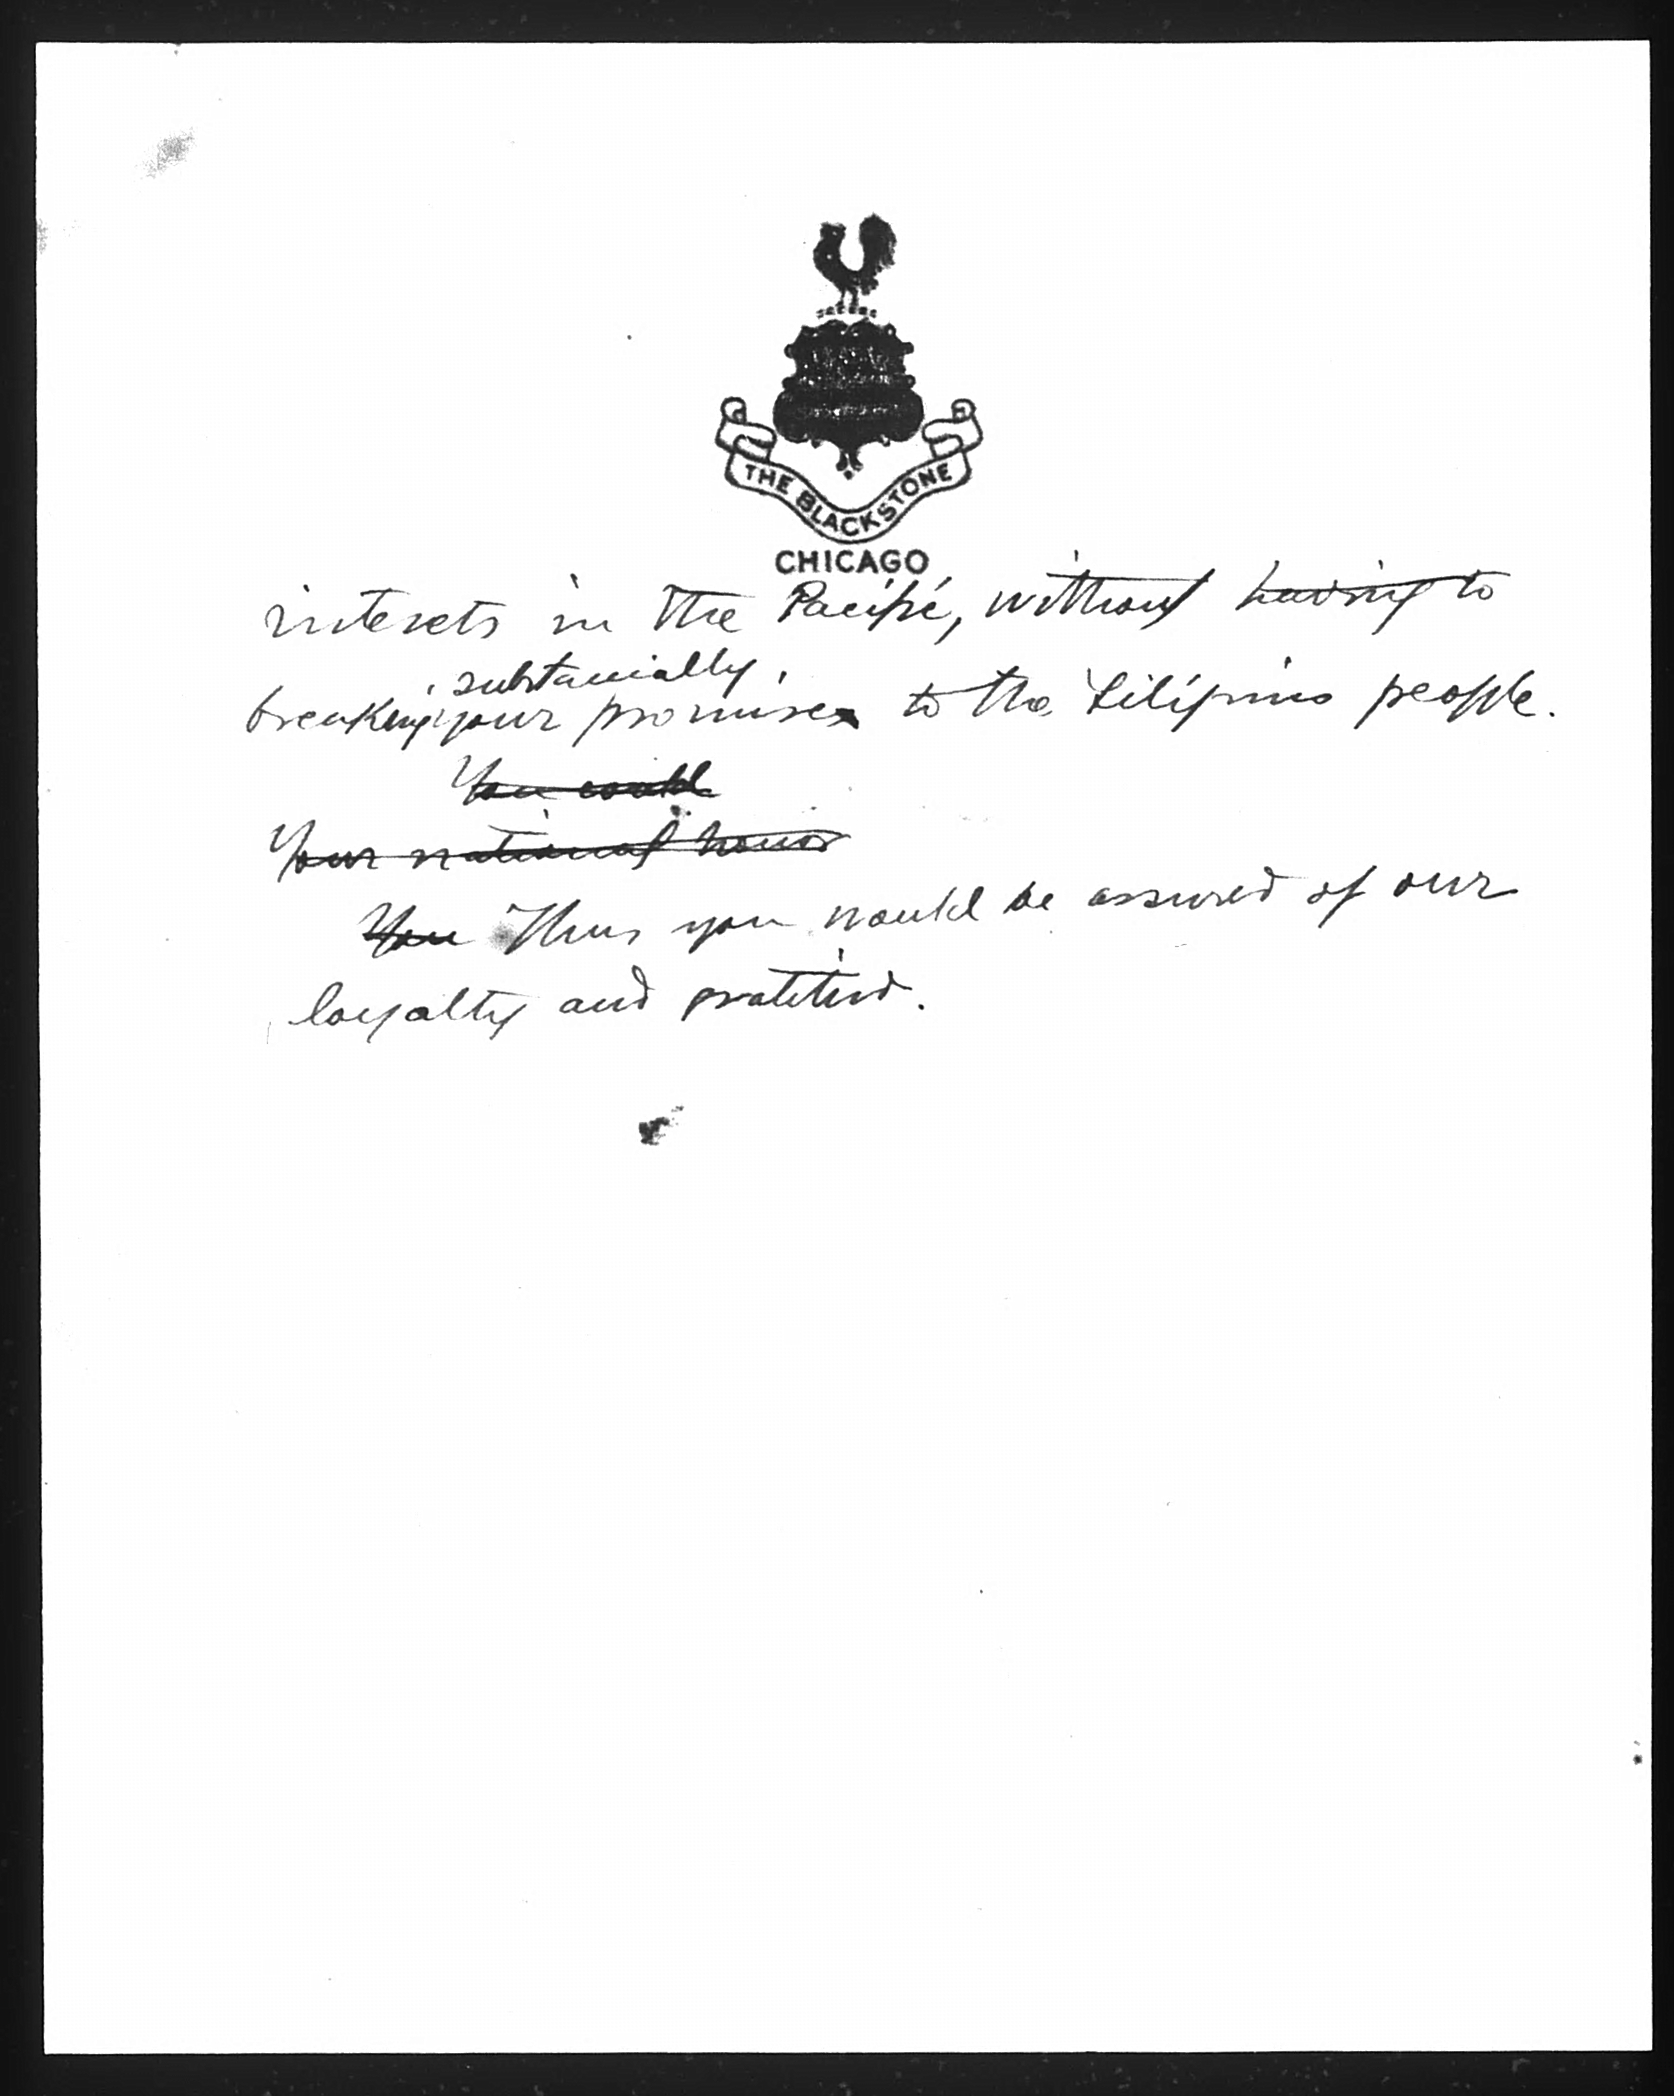 THE BLACKSTONE
CHICAGO
interets in the Pacific, without having to
substancially
breaking your promises to the Filipino people.
You could
Your national honor
You Thus you would be assured of our
loyalty and gratitud.